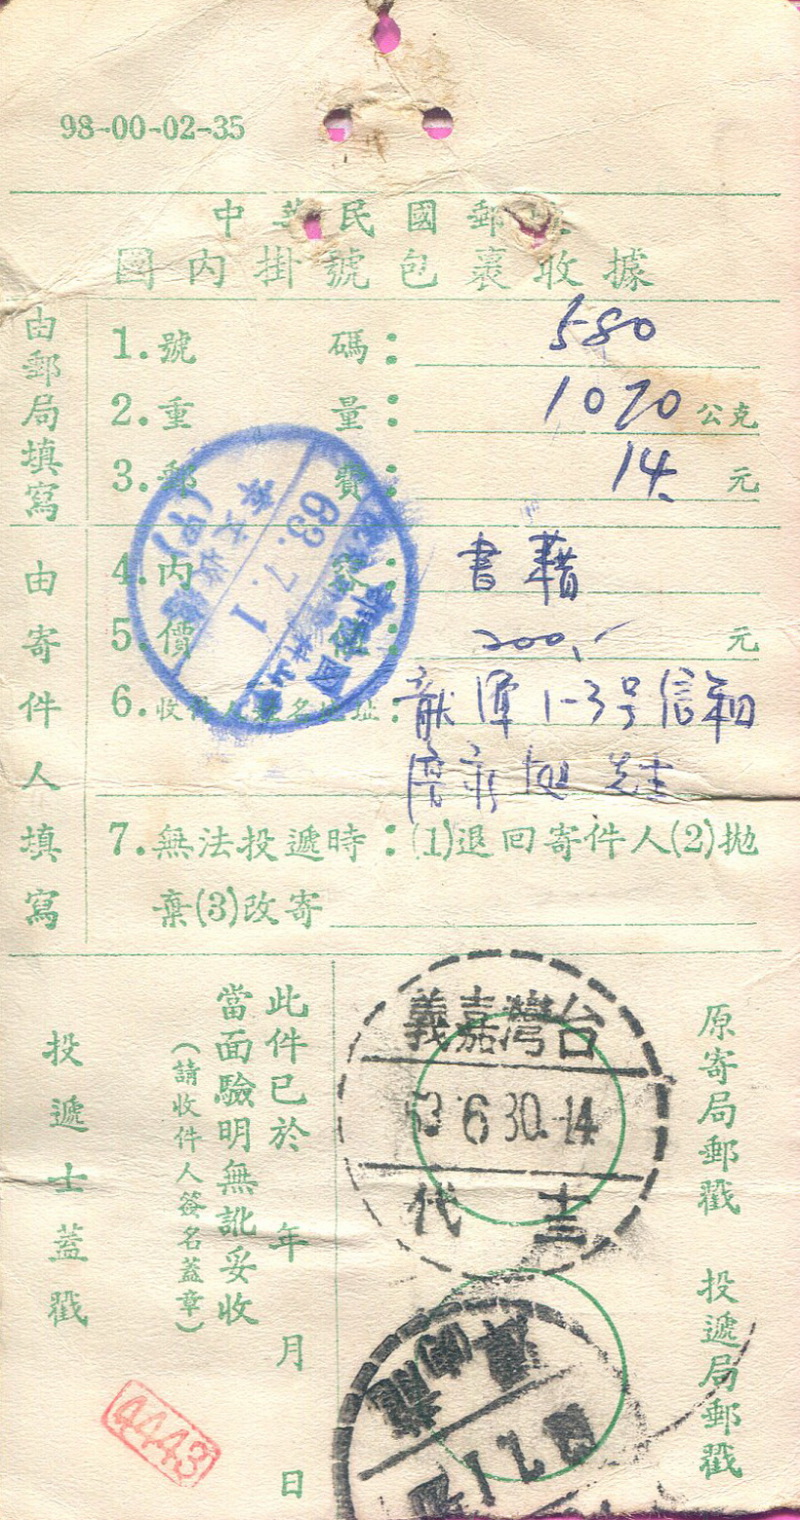 98-00-02-35
中華民國郵
國內掛號包裹收據
由郵局填寫
1.號碼：580
2.重量：1070公克
3.郵費：14.元
由寄件人填寫
4.內容：書籍
5.價值：200,-元
6.收件人姓名地址：龍潭1-3号信箱
先生
7.無法投遞時：(1)退回寄件人(2)拋
棄(3)改寄
63.7.1
(甲)
原寄局郵戳
台灣嘉義
63 6 30.-14
代
投遞局郵戳
此件已於 年 月 日
當面驗明無訛妥收
(請收件人簽名蓋章)
投遞士蓋戳
4443